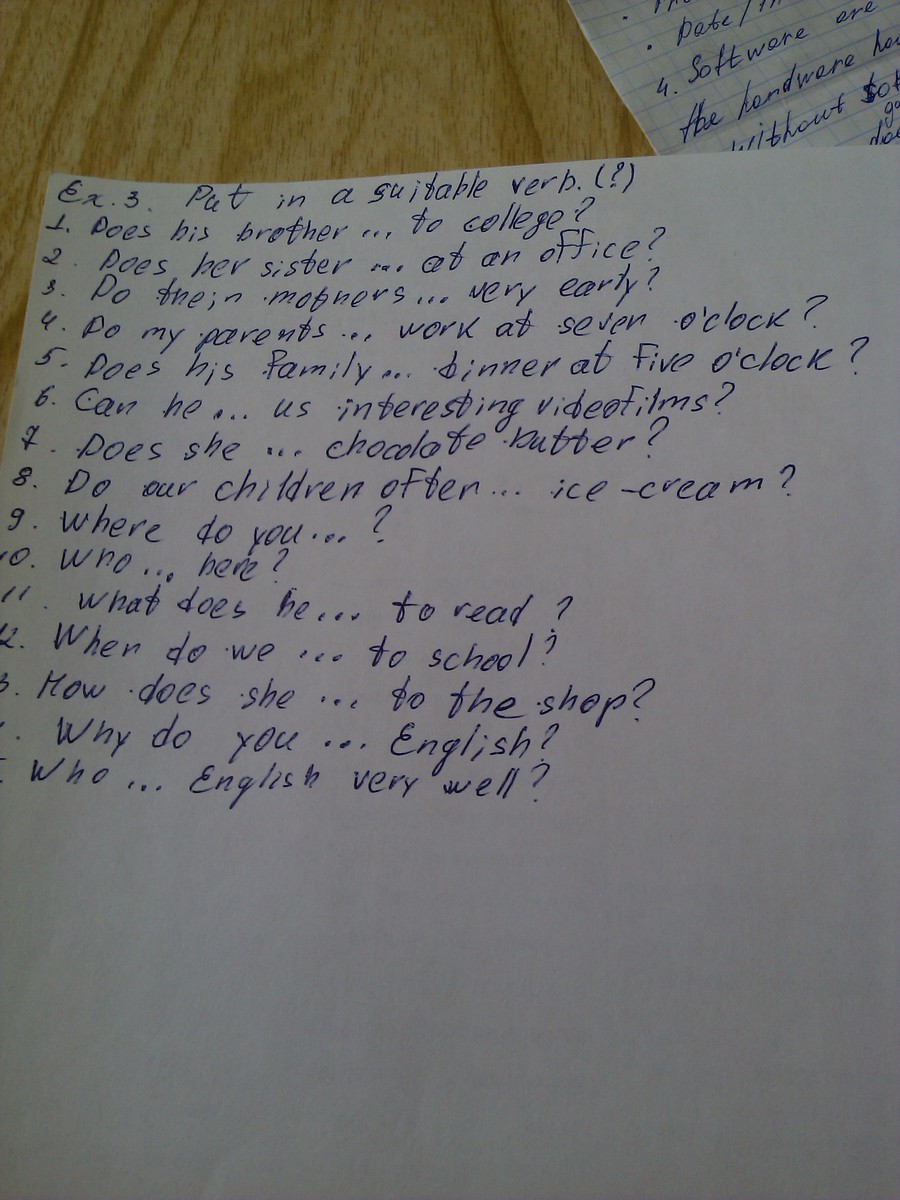 Date/
4. Software are
the hardware
without
Ex. 3. Put in a suitable verb. (?)
1. Does his brother ... to college?
2. Does her sister ... at an office?
3. Do their mothers ... very early?
4. Do my parents ... work at seven o'clock?
5. Does his family ... dinner at five o'clock?
6. Can he ... us interesting videofilms?
7. Does she ... chocolate butter?
8. Do our children often ... ice-cream?
9. Where do you ... ?
0. Who ... here?
11. What does he ... to read?
2. When do we ... to school?
3. How does she ... to the shop?
. Why do you ... English?
Who ... English very well?